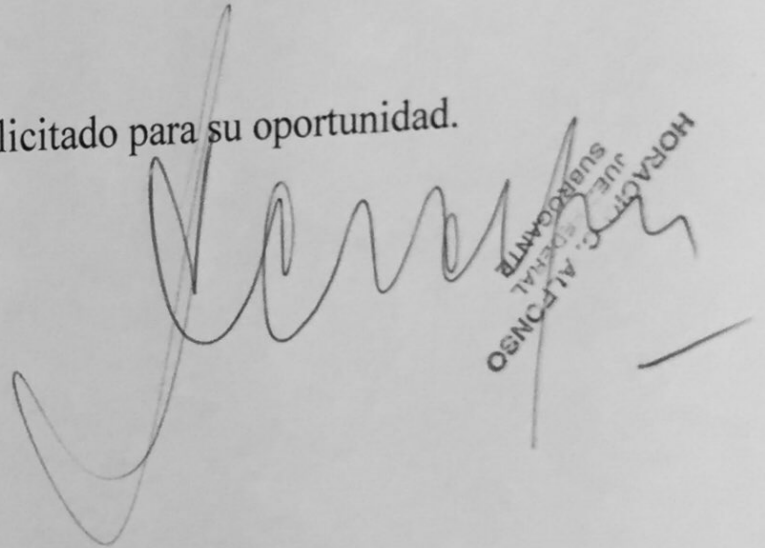 licitado para su oportunidad.
HORACIO C. ALFONSO
JUEZ FEDERAL
SUBROGANTE